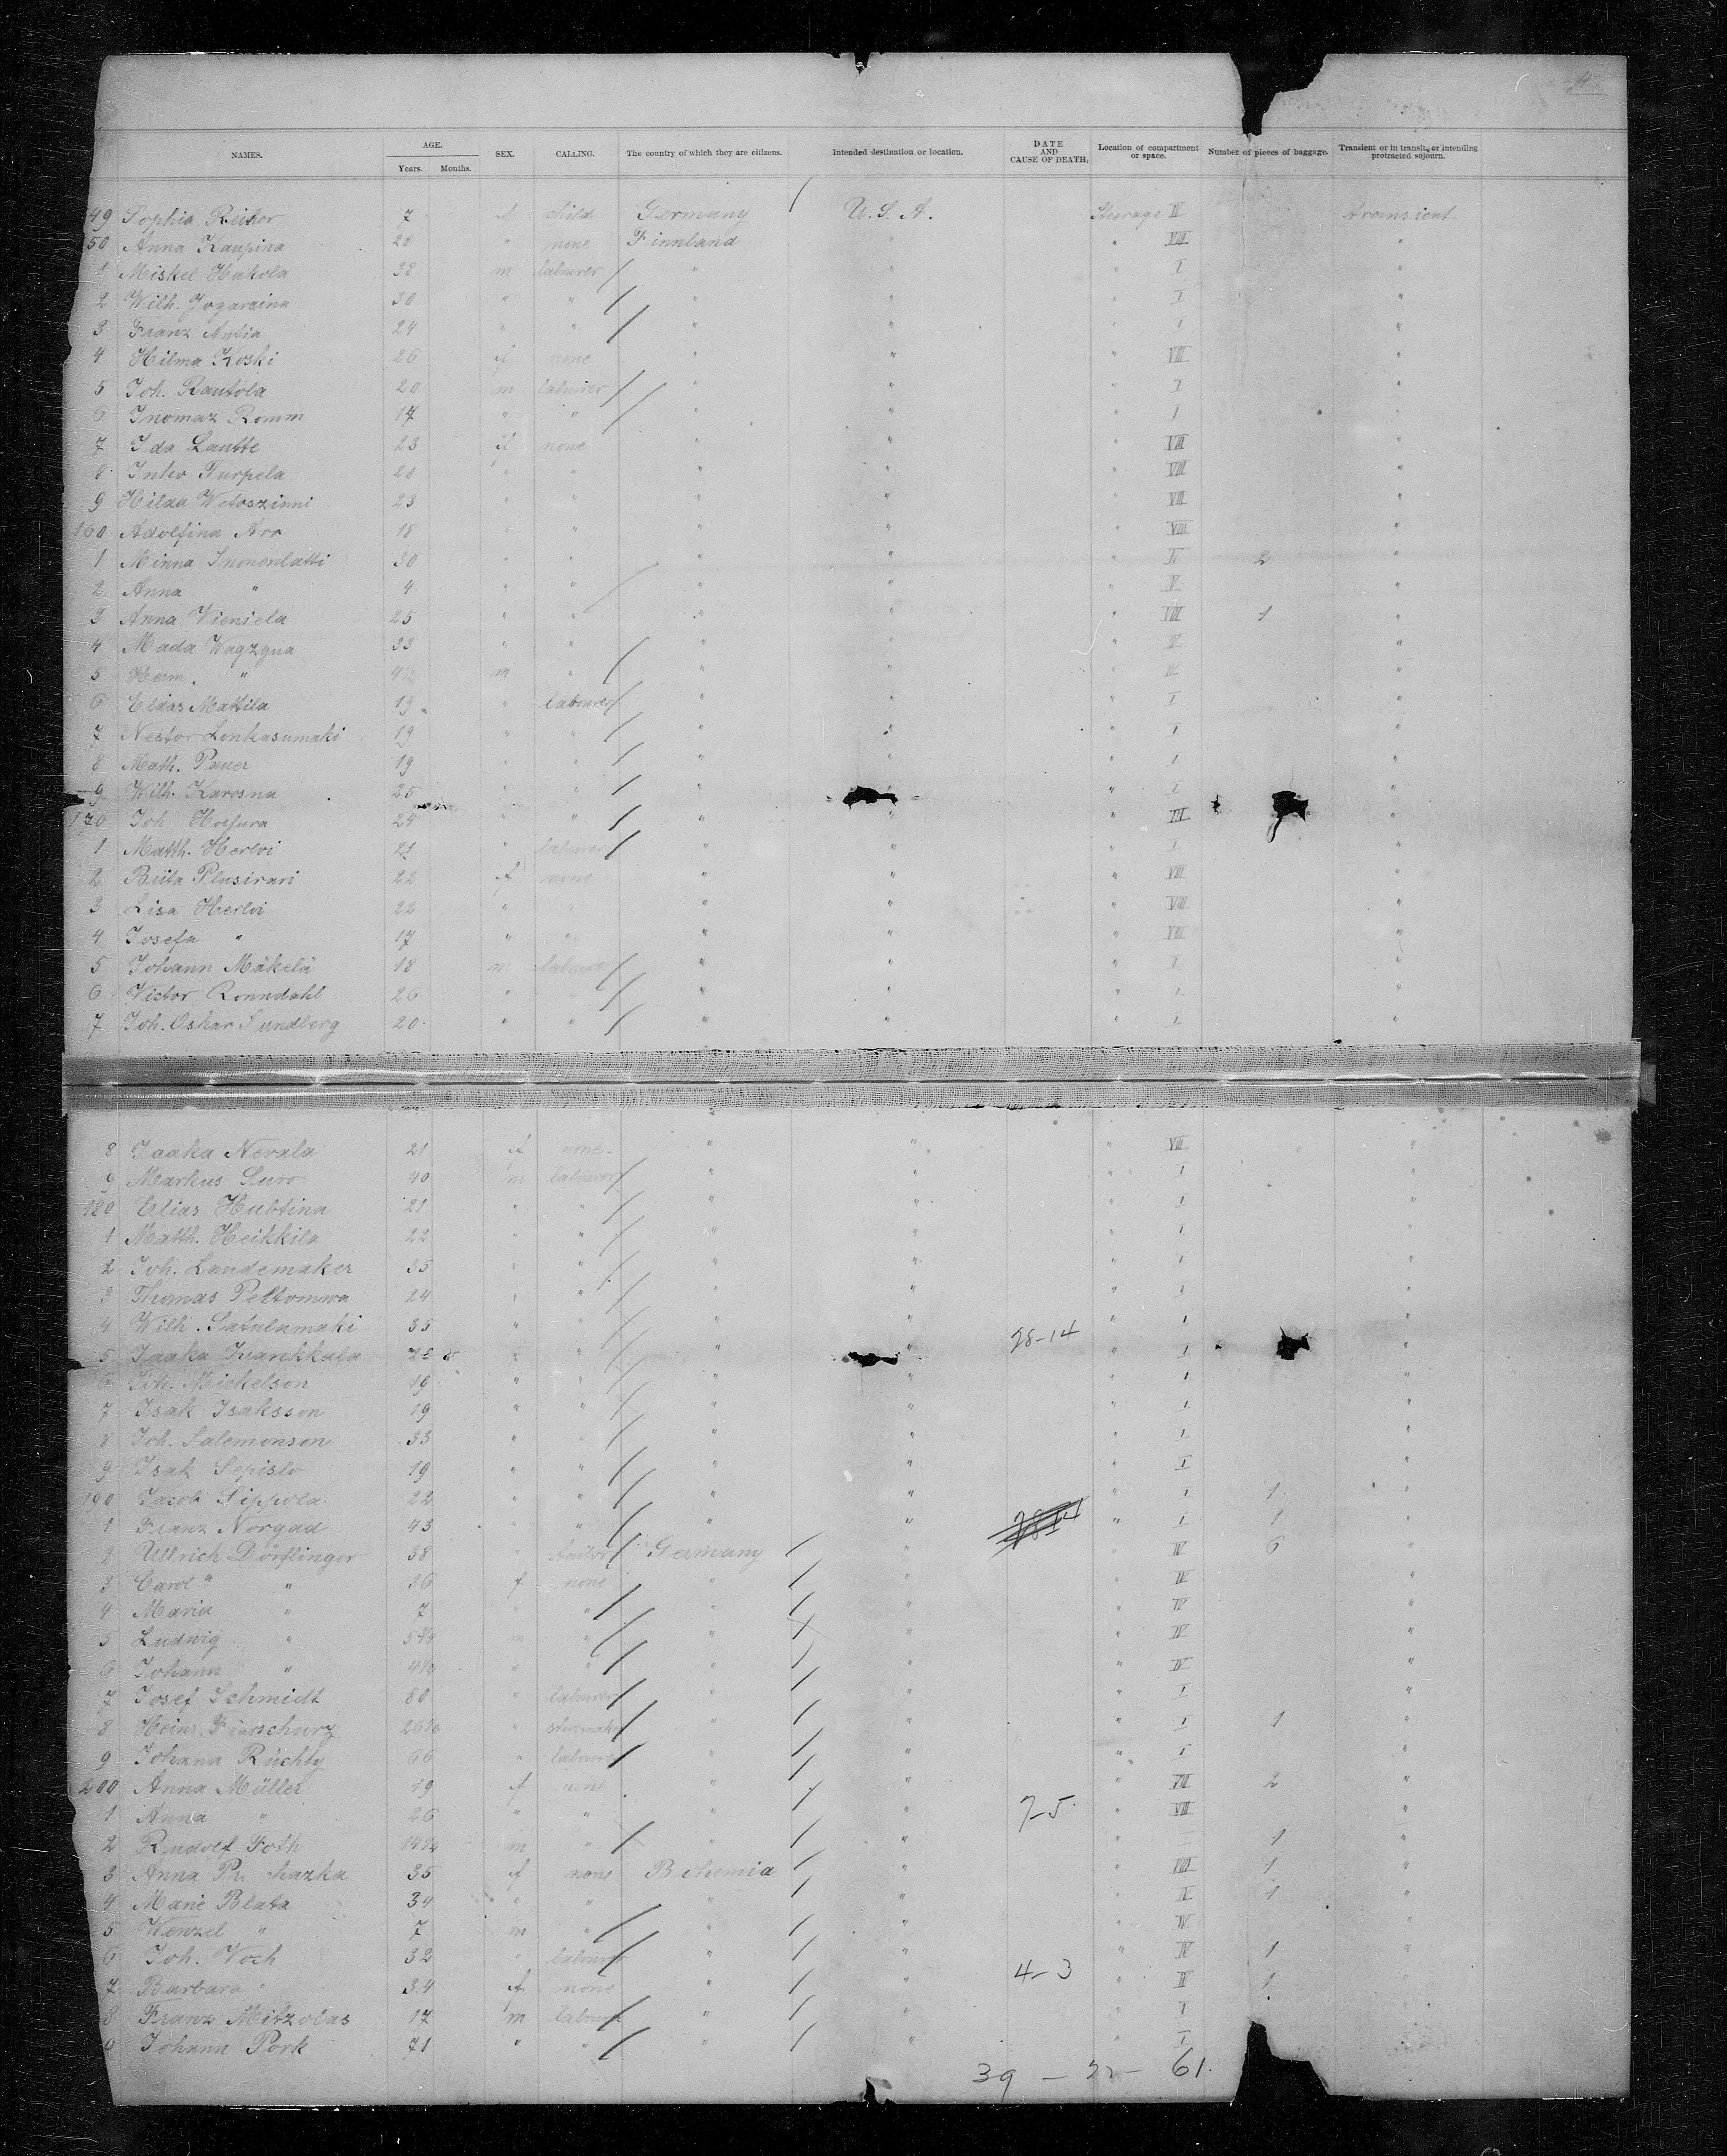 4
NAMES. AGE. Years. Months. SEX. CALLING. The country of which they are citizens. Intended destination or location. DATE AND CAUSE OF DEATH. Location of compartment or space. Number of pieces of baggage. Transient or in transit, or intending protracted sojourn.
49 Sophia Reiter 7 f child Germany U.S.A. Steerage IV transient
50 Anna Kaupina 28 " none Finnland " " VIII "
1 Miskel Hakola 38 m labourer " " " I "
2 Wilh. Jogarsina 30 " " " " " I "
3 Franz Antia 24 " " " " " I "
4 Hilma Koski 26 f none " " " VIII "
5 Joh. Rautola 20 m labourer " " " I "
6 Inomaz Romm 17 " " " " " I "
7 Ida Lautte 23 f none " " " VIII "
8 Inko Purpela 20 " " " " " VIII "
9 Hilda Wetoszinni 23 " " " " " VIII "
160 Adolfina Aro 18 " " " " " VIII "
1 Minna Inonenlatti 30 " " " " " 2 "
2 Anna " 4 " " " " " V "
3 Anna Vieniela 25 " " " " " VIII 1 "
4 Mada Wagzgua 33 " " " " " "
5 Herm. " m " " " " "
6 Elias Mattila 19 " labourer " " " I "
7 Nestor Lonkasumaki 19 " " " " " I "
8 Math. Pauer 19 " " " " " I "
9 Wilh. Karosna 25 " " " " " I "
170 Joh Hossura 24 " " " " " III "
1 Matth. Herlvi 21 " labourer " " " I "
2 Riita Plusirari 22 f none " " " VIII "
3 Lisa Herlvi 22 " " " " " VIII "
4 Josefa " 17 " " " " " VIII "
5 Johann Mäkelä 18 m labourer " " " I "
6 Victor Ronndahl 26 " " " " " I "
7 Joh. Oskar Sundberg 20 " " " " " I "
8 Jaaka Nevala 21 f none " " " VIII "
9 Markus Suro 40 m labourer " " " I "
180 Elias Hubtina 21 " " " " " I "
1 Matth. Heikkila 22 " " " " " I "
2 Joh. Laudemaker 35 " " " " " I "
3 Thomas Peltomwa 24 " " " " " I "
4 Wilh. Satulamaki 35 " " " " " I "
28-14
5 Jaaka Krankkala " " " " " I "
6 Joh. Mickelson 19 " " " " " I "
7 Isak Isaksson 19 " " " " " I "
8 Joh. Salemonson 33 " " " " " I "
9 Isak Sepislo 19 " " " " " I "
190 Jacob Sippola 22 " " " " " I 1 "
1 Franz Norgad 43 " " " " 28-14 " I 1 "
2 Ullrich Dörflinger 38 " Germany " " IV 6 "
3 Carol " " 36 f none " " " IV "
4 Maria " 7 " " " " " IV "
5 Ludwig " m " " " " IV "
6 Johann " " " " " " IV "
7 Josef Schmidt 80 " labourer " " " I "
8 Heinr. " " " " I 1 "
9 Johann Rüchty 66 " labourer " " " I "
200 Anna Müller f none " " " VIII 2 "
1 Anna " 26 " " " " 7-5 " VIII "
2 Rudolf Foth m " " " " 1 "
3 Anna 35 f none Bohemia " " VIII 1 "
4 Marie Blata 34 " " " " " 1 "
5 Wenzel " 7 m " " " " IV "
6 Joh. Voch 32 " labourer " " " IV 1 "
4-3
7 Barbara " 34 f none " " " 1 "
8 Franz Mitzolas 17 m labourer " " " I "
9 Johann Pork 71 " " " " " I
39 - - 61.